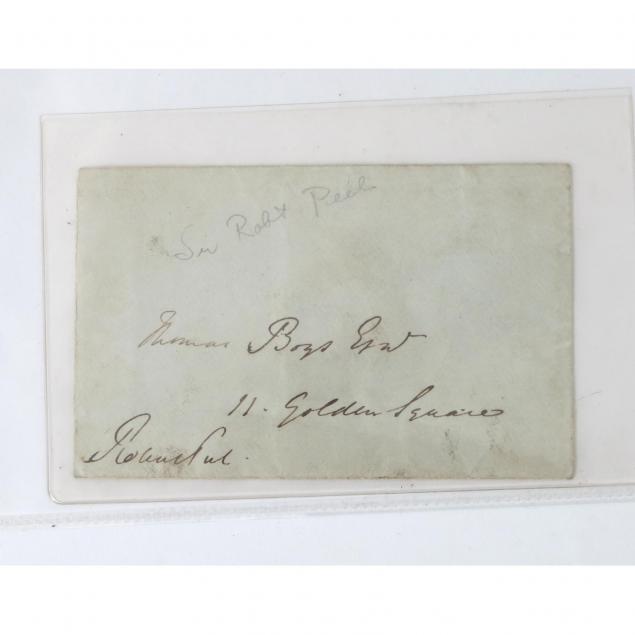 Sir Robt Peel
Thomas Boys Esqr
11. Golden Square
Robert Peel.